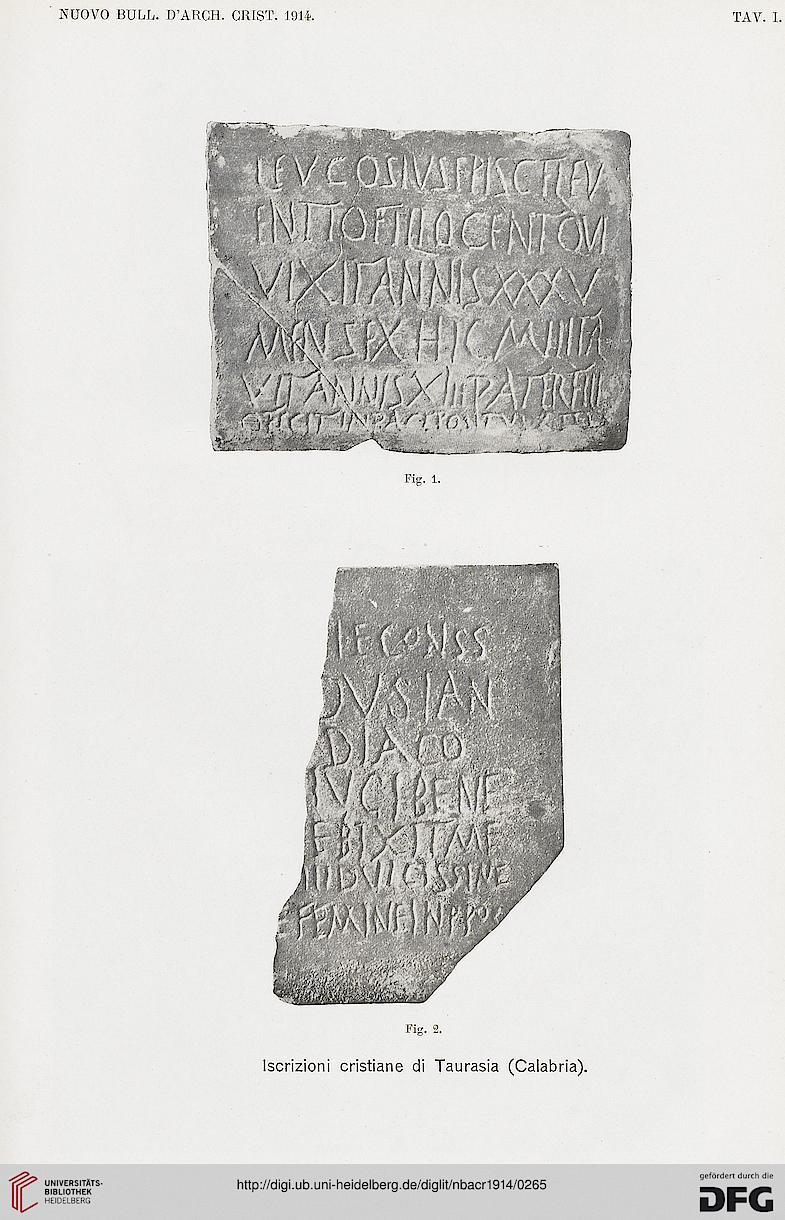 NUOVO BULL. D'ARCH. CRIST. 1914.
TAV. I.
LEVCOSIVSEPISCTLEV
ENTTOFILIOCENTQVI
VIXITANNISXXXV
MENS
HIC
VITANNISXIIIPATERFILI
Fig. 1.
ECONSS
VSIAN
DIACO
BENE
EBIXITME
DVLCISSIME
FEMINEINPP
Fig. 2.
Iscrizioni cristiane di Taurasia (Calabria).
UNIVERSITÄTS-
BIBLIOTHEK
HEIDELBERG
http://digi.ub.uni-heidelberg.de/diglit/nbacr1914/0265
gefördert durch die
DFG